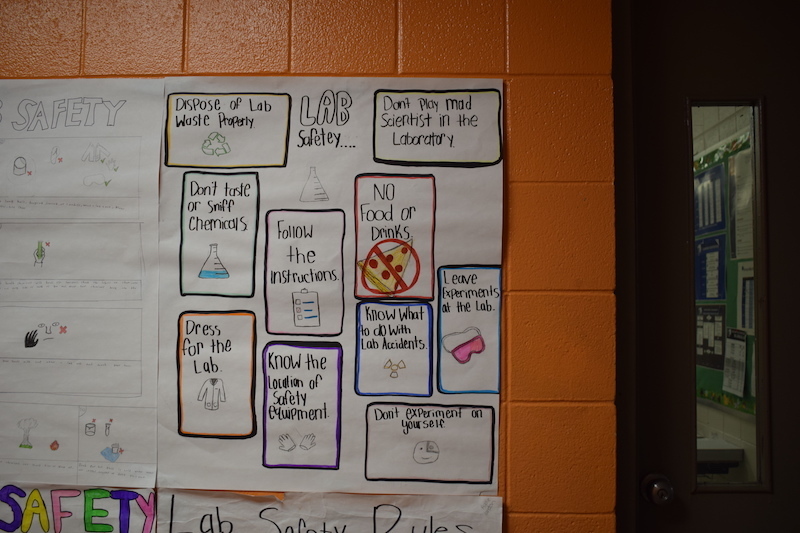 SAFETY
LAB
Safetey....
Dispose of Lab
Waste Properly.
Don't play mad
Scientist in the
Laboratory.
Don't taste
or Sniff
Chemicals.
Follow
the
instructions.
NO
Food or
Drinks.
Leave
Experiments
at the Lab.
Dress
for the
Lab.
Know the
Location of
Safety
equipment.
Know What
to do With
Lab Accidents.
Dont experiment on
yourself.
SAFETY
Lab Safety Rules